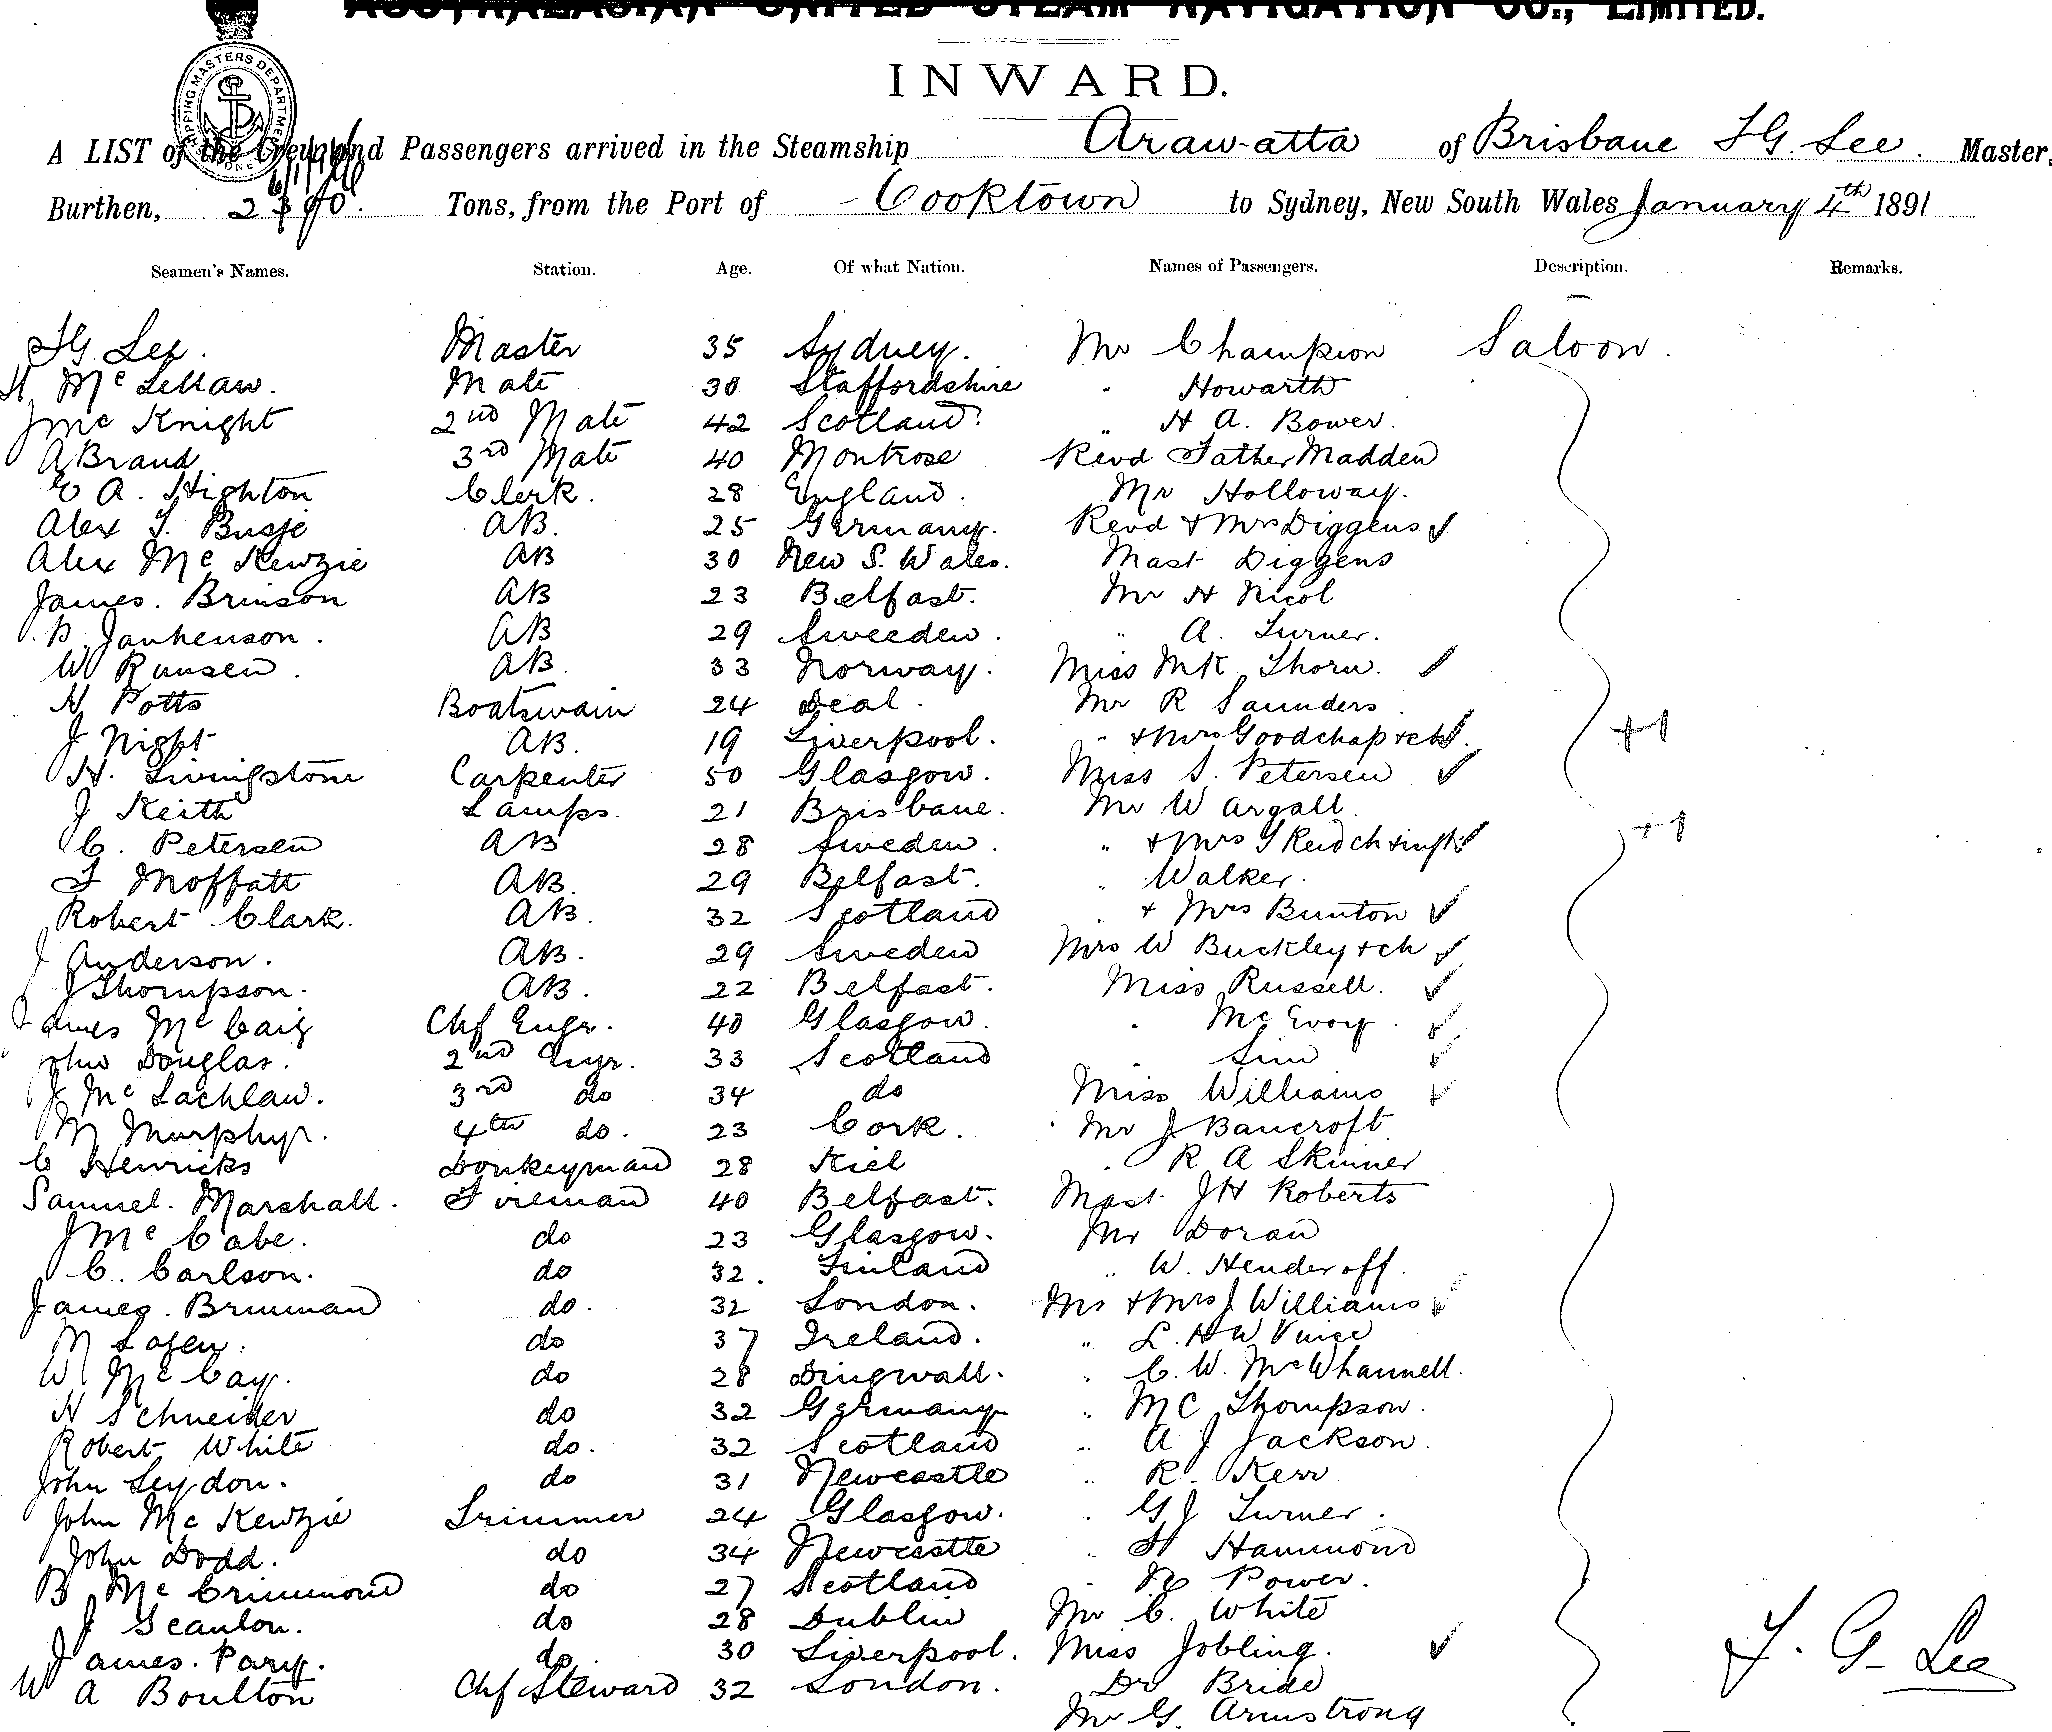 AUSTRALASIAN UNITED STEAM NAVIGATION CO., LIMITED.
INWARD.
A LIST of the Crew and Passengers arrived in the Steamship Arawatta of Brisbane T G. Lee. Master,
Burthen, Tons, from the Port of Cooktown to Sydney, New South Wales January 4th 1891
Seamen's Names. Station. Age. Of what Nation. Names of Passengers. Description. Remarks.
T G. Lee. Master 35 Sydney. Mr Champion Saloon.
H McLellan. Mate 38 Staffordshire " Howarth
J McKnight 2nd Mate 42 Scotland. " H A. Bower.
A Brand 3rd Mate 40 Montrose Revd Father Madden
E A. Highton Clerk. 28 England. Mr Holloway.
Alex T. Busje AB. 25 Germany. Revd + Mrs Diggens
Alex McKenzie AB 30 New S. Wales. Mast Diggens
James. Brinson AB 23 Belfast. Mr H Nicol
Jauhenson. AB 29 Sweeden. " A. Turner.
W Runsen. AB. 33 Norway. Miss MK Thorn.
H Potts Boatswain 24 Deal. Mr R Saunders
J Night AB. 19 Liverpool. " + Mrs Goodchap + ch ++1
H. Livingstone Carpenter 50 Glasgow. Miss S. Petersen
J Keith Lamps. 21 Brisbane. Mr W Argall
C. Petersen AB 28 Sweden. " + Mrs Reid ch + inft ++1
T Moffatt AB. 29 Belfast. " Walker.
Robert Clark. AB. 32 Scotland " + Mrs Bunton
J Anderson. AB. 29 Sweden Mrs W Buckley + ch
J Thompson. AB. 22 Belfast. Miss Russell.
James McCaig Chf Engr. 40 Glasgow. " McEvoy.
John Douglas. 2nd Engr. 33 Scotland " Sim
J McLachlan. 3rd do 34 do Miss Williams
M Murphy. 4th do. 23 Cork. Mr J Bancroft
C Henricks Donkeyman 28 Kiel " R A Skinner
Samuel. Marshall. Fireman 40 Belfast. Mast JH Roberts
J McCabe. do 23 Glasgow. Mr Doran
C. Carlson. do 32. Finland " W. Henderoff.
James. Brinman do. 32 London. Mr + Mrs J Williams
M do 37 Ireland. " L. H W Vince
W McCay. do 28 Dingwall. " C. W. McWhannell.
H Schneider do 32 Germany " M C Thompson.
Robert White do. 32 Scotland " A J Jackson.
John Leydon. do 31 Newcastle " R. Kerr
John McKenzie Trimmer 24 Glasgow. " G J Turner.
John Dodd. do 34 Newcastle " H Hammond
B McCrimmond do 27 Scotland " Power.
J Scanlon. do 28 Dublin Mr C. White
James. Pary. do 30 Liverpool. Miss Jobling.
W A Boulton Chf Steward 32 London. Dr Bride
Mr G. Armstrong
T. G. Lee